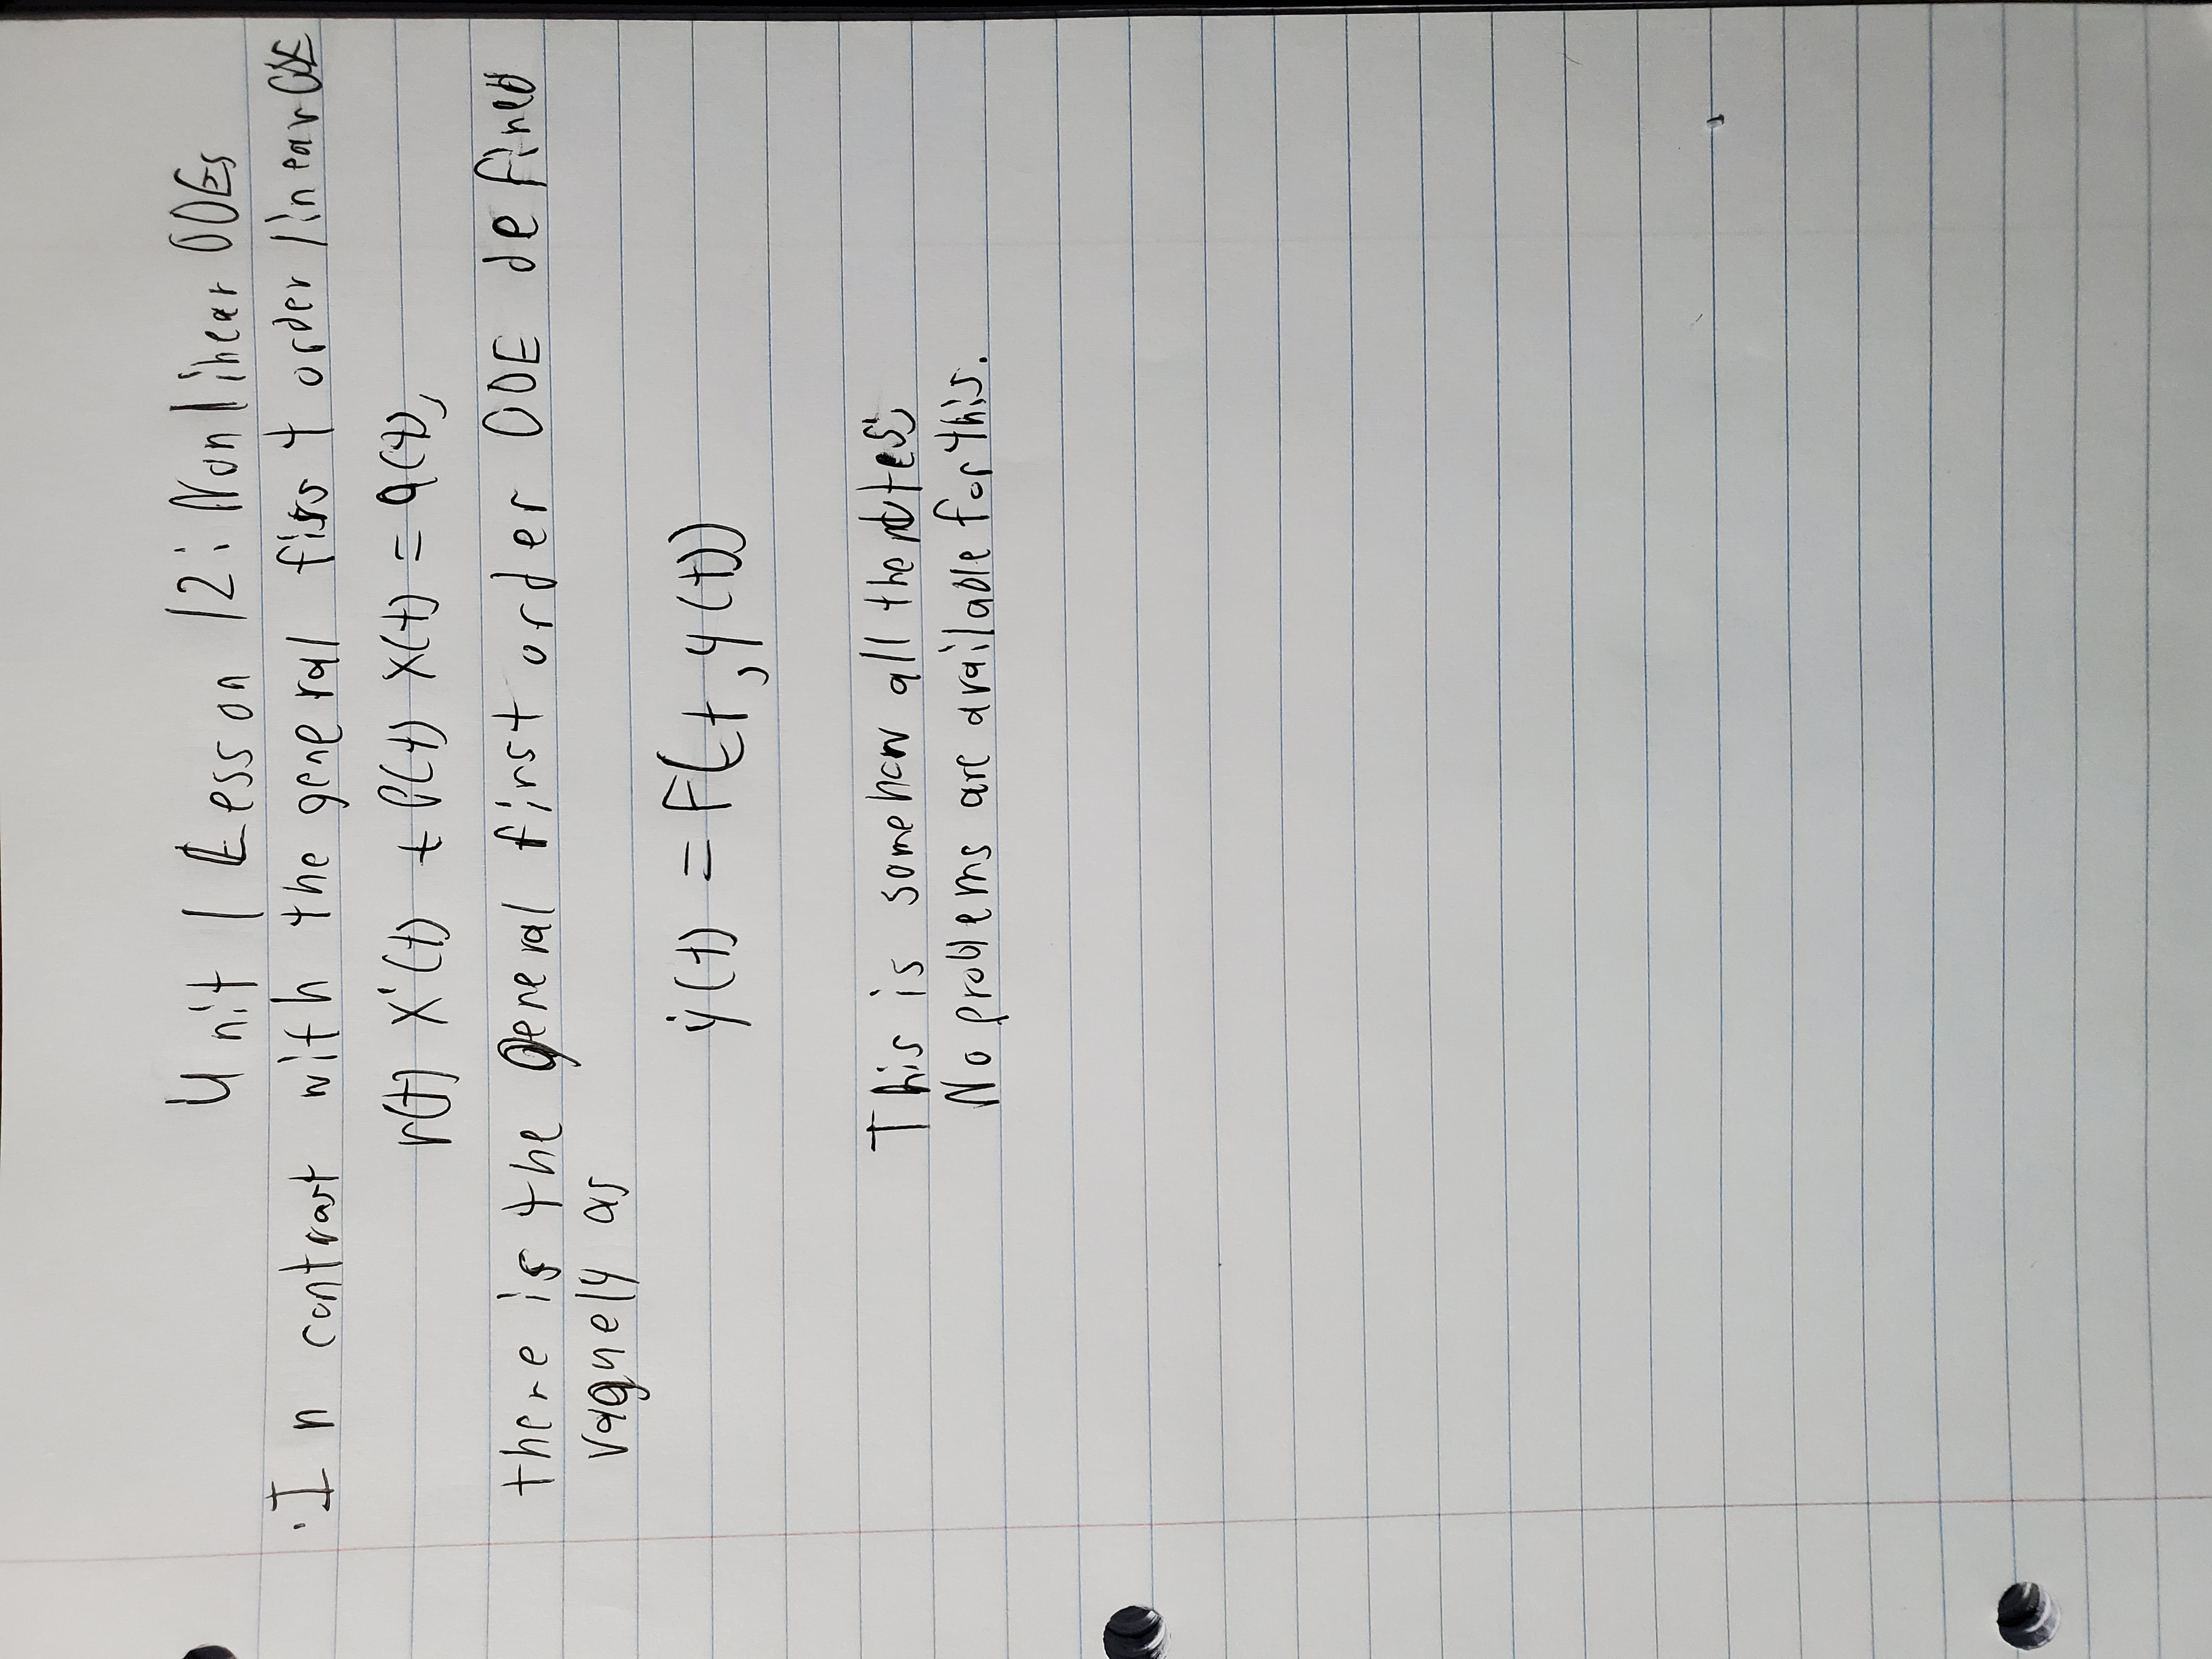 Unit 1 Lesson 12: Nonlinear ODEs
·In contrast with the general first order linear ODE
r(t) x'(t) + P(t) x(t) = q(t),
there is the general first order ODE defined
vaguely as
ẏ(t) = F(t,y(t))
This is somehow all the notes;
No problems are available for this.